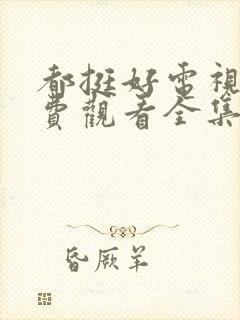 都挺好電視
費觀看全集
昏厥羊